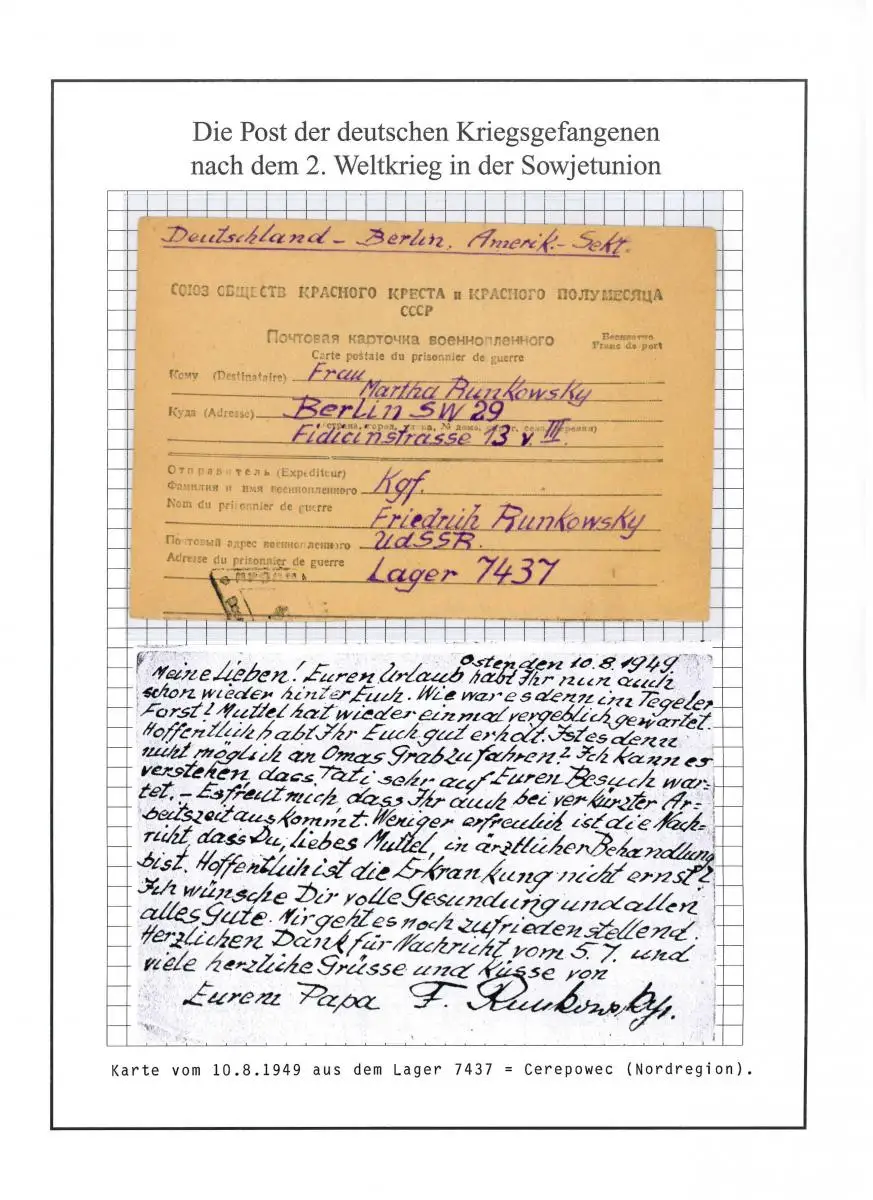 Die Post der deutschen Kriegsgefangenen
nach dem 2. Weltkrieg in der Sowjetunion
Deutschland – Berlin, Amerik.- Sekt.
СОЮЗ ОБЩЕСТВ КРАСНОГО КРЕСТА и КРАСНОГО ПОЛУМЕСЯЦА
СССР
Почтовая карточка военнопленного
Бесплатно
Carte postale du prisonnier de guerre
Franc de port
Кому (Destinataire) Frau
Martha Runkowsky
Куда (Adresse) Berlin SW 29
(страна, город, улица, № дома, село, деревня)
Fidicinstrasse 13 v. III.
Отправитель (Expéditeur)
Фамилия и имя военнопленного Kgf.
Nom du prisonnier de guerre
Friedrich Runkowsky
Почтовый адрес военнопленного UdSSR.
Adresse du prisonnier de guerre
Lager 7437
Osten den 10.8.1949
Meine Lieben! Euren Urlaub habt Ihr nun auch
schon wieder hinter Euch. Wie war es denn im Tegeler
Forst? Muttel hat wieder einmal vergeblich gewartet.
Hoffentlich habt Ihr Euch gut erholt. Ist es denn
nicht möglich an Omas Grab zu fahren? Ich kann es
verstehen, dass Tati sehr auf Euren Besuch war=
tet. – Es freut mich, dass Ihr auch bei verkürzter Ar=
beitszeit auskommt. Weniger erfreulich ist die Nach=
richt, dass Du, liebes Muttel, in ärztlicher Behandlung
bist. Hoffentlich ist die Erkrankung nicht ernst?
Ich wünsche Dir volle Gesundung und allen
alles Gute. Mir geht es noch zufriedenstellend.
Herzlichen Dank für Nachricht vom 5.7. und
viele herzliche Grüsse und Küsse von
Eurem Papa F. Runkowsky.
Karte vom 10.8.1949 aus dem Lager 7437 = Cerepowec (Nordregion).